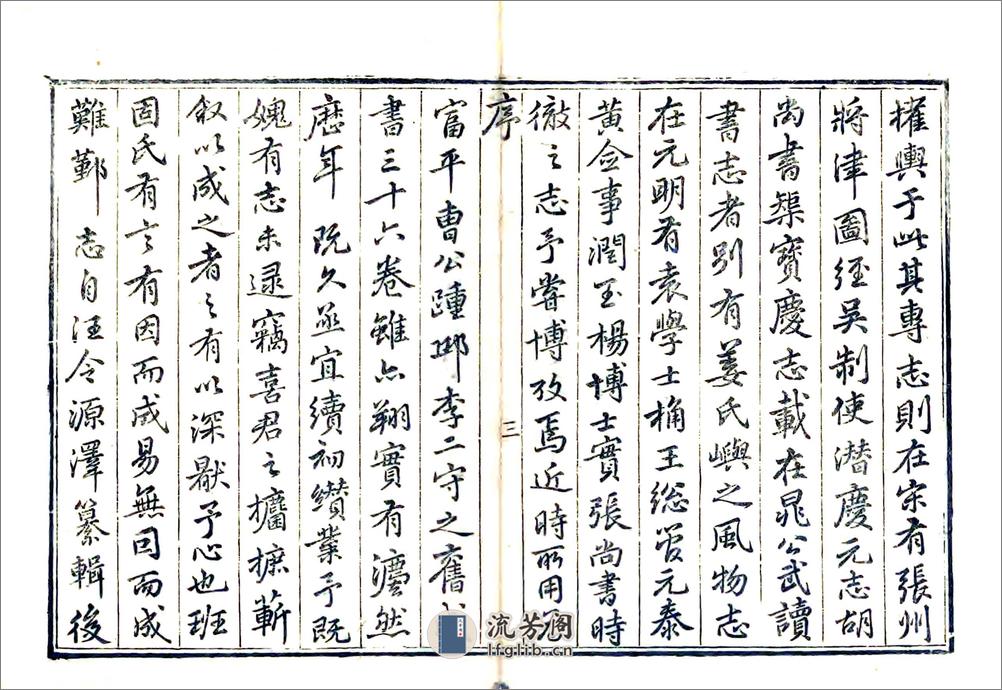 權輿于此其專志則在宋有張州
將津圖經吴制使潜慶元志胡
尚書榘寶慶志載在晁公武讀
書志者别有姜氏嶼之風物志
在元明有袁學士桷王総管元泰
黄僉事潤玉楊博士實張尚書時
徹之志予嘗博攷焉近時所用
序
三
富平曹公踵邱李二守之舊
書三十六卷雖亦翔實有灋然
歷年既久亟宜續初纘業予既
媿有志未逮竊喜君之攟摭蕲
叙以成之者之有以深厭予心也班
固氏有言有因而成易無因而成
難鄞志自汪令源澤纂輯後
流芳阁
lfglib.cn